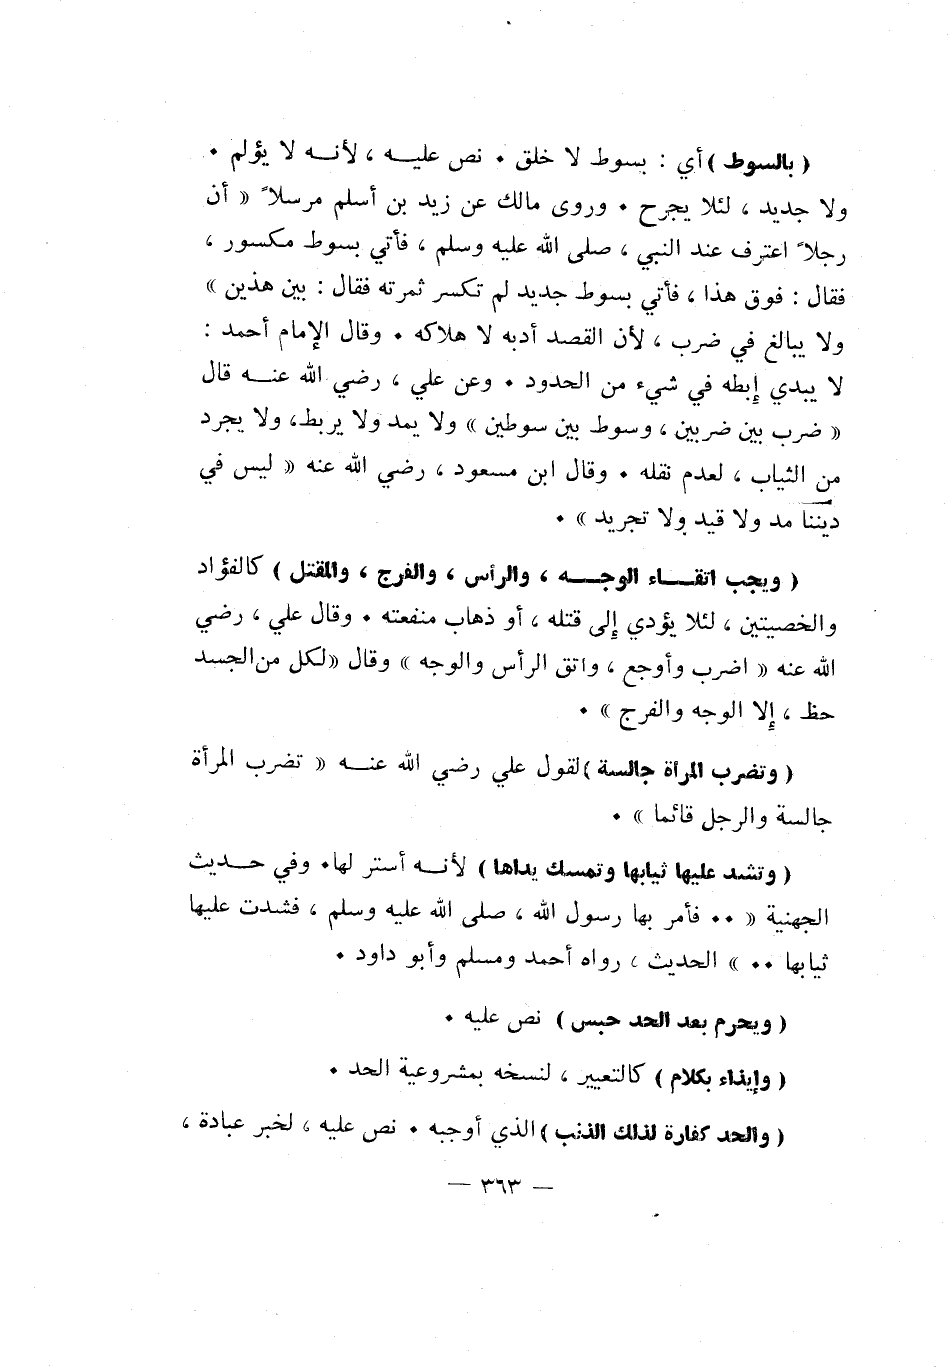 ( بالسوط ) أي : بسوط لا خلق . نص عليــه ، لأنــه لا يؤلم .
ولا جديد ، لئلا يجرح . وروى مالك عن زيد بن أسلم مرسلاً « أن
رجلاً اعترف عند النبي ، صلى الله عليه وسلم ، فأتي بسوط مكسور ،
فقال : فوق هذا ، فأتي بسوط جديد لم تكسر ثمرته فقال : بين هذين »
ولا يبالغ في ضرب ، لأن القصد أدبه لا هلاكه . وقال الإمام أحمد :
لا يبدي إبطه في شيء من الحدود . وعن علي ، رضي الله عنــه قال
« ضرب بين ضربين ، وسوط بين سوطين » ولا يمد ولا يربط، ولا يجرد
من الثياب ، لعدم نقله . وقال ابن مسعود ، رضي الله عنه « ليس في
ديننا مد ولا قيد ولا تجريد » .
( ويجب اتقــاء الوجــه ، والرأس ، والفرج ، والمقتل ) كالفؤاد
والخصيتين ، لئلا يؤدي إلى قتله ، أو ذهاب منفعته . وقال علي ، رضي
الله عنه « اضرب وأوجع ، واتق الرأس والوجه » وقال «لكل من الجسد
حظ ، إلا الوجه والفرج » .
( وتضرب المرأة جالسة ) لقول علي رضي الله عنــه « تضرب المرأة
جالسة والرجل قائما » .
( وتشد عليها ثيابها وتمسك يداها ) لأنــه أستر لها. وفي حــديث
الجهنية « .. فأمر بها رسول الله ، صلى الله عليه وسلم ، فشدت عليها
ثيابها .. » الحديث ، رواه أحمد ومسلم وأبو داود .
( ويحرم بعد الحد حبس ) نص عليه .
( وإيذاء بكلام ) كالتعيير ، لنسخه بمشروعية الحد .
( والحد كفارة لذلك الذنب ) الذي أوجبه . نص عليه ، لخبر عبادة ،
— ٣٦٣ —